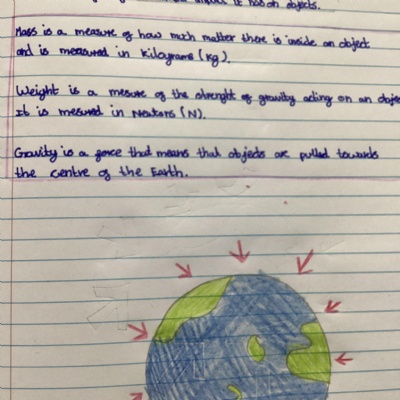 it has on objects.
Mass is a measure of how much matter there is inside an object
and is measured in kilograms (kg).
Weight is a mesure of the strenght of gravity acting on an
It is mesured in Newtons (N).
Gravity is a force that means that objects are pulled towards
the centre of the Earth.